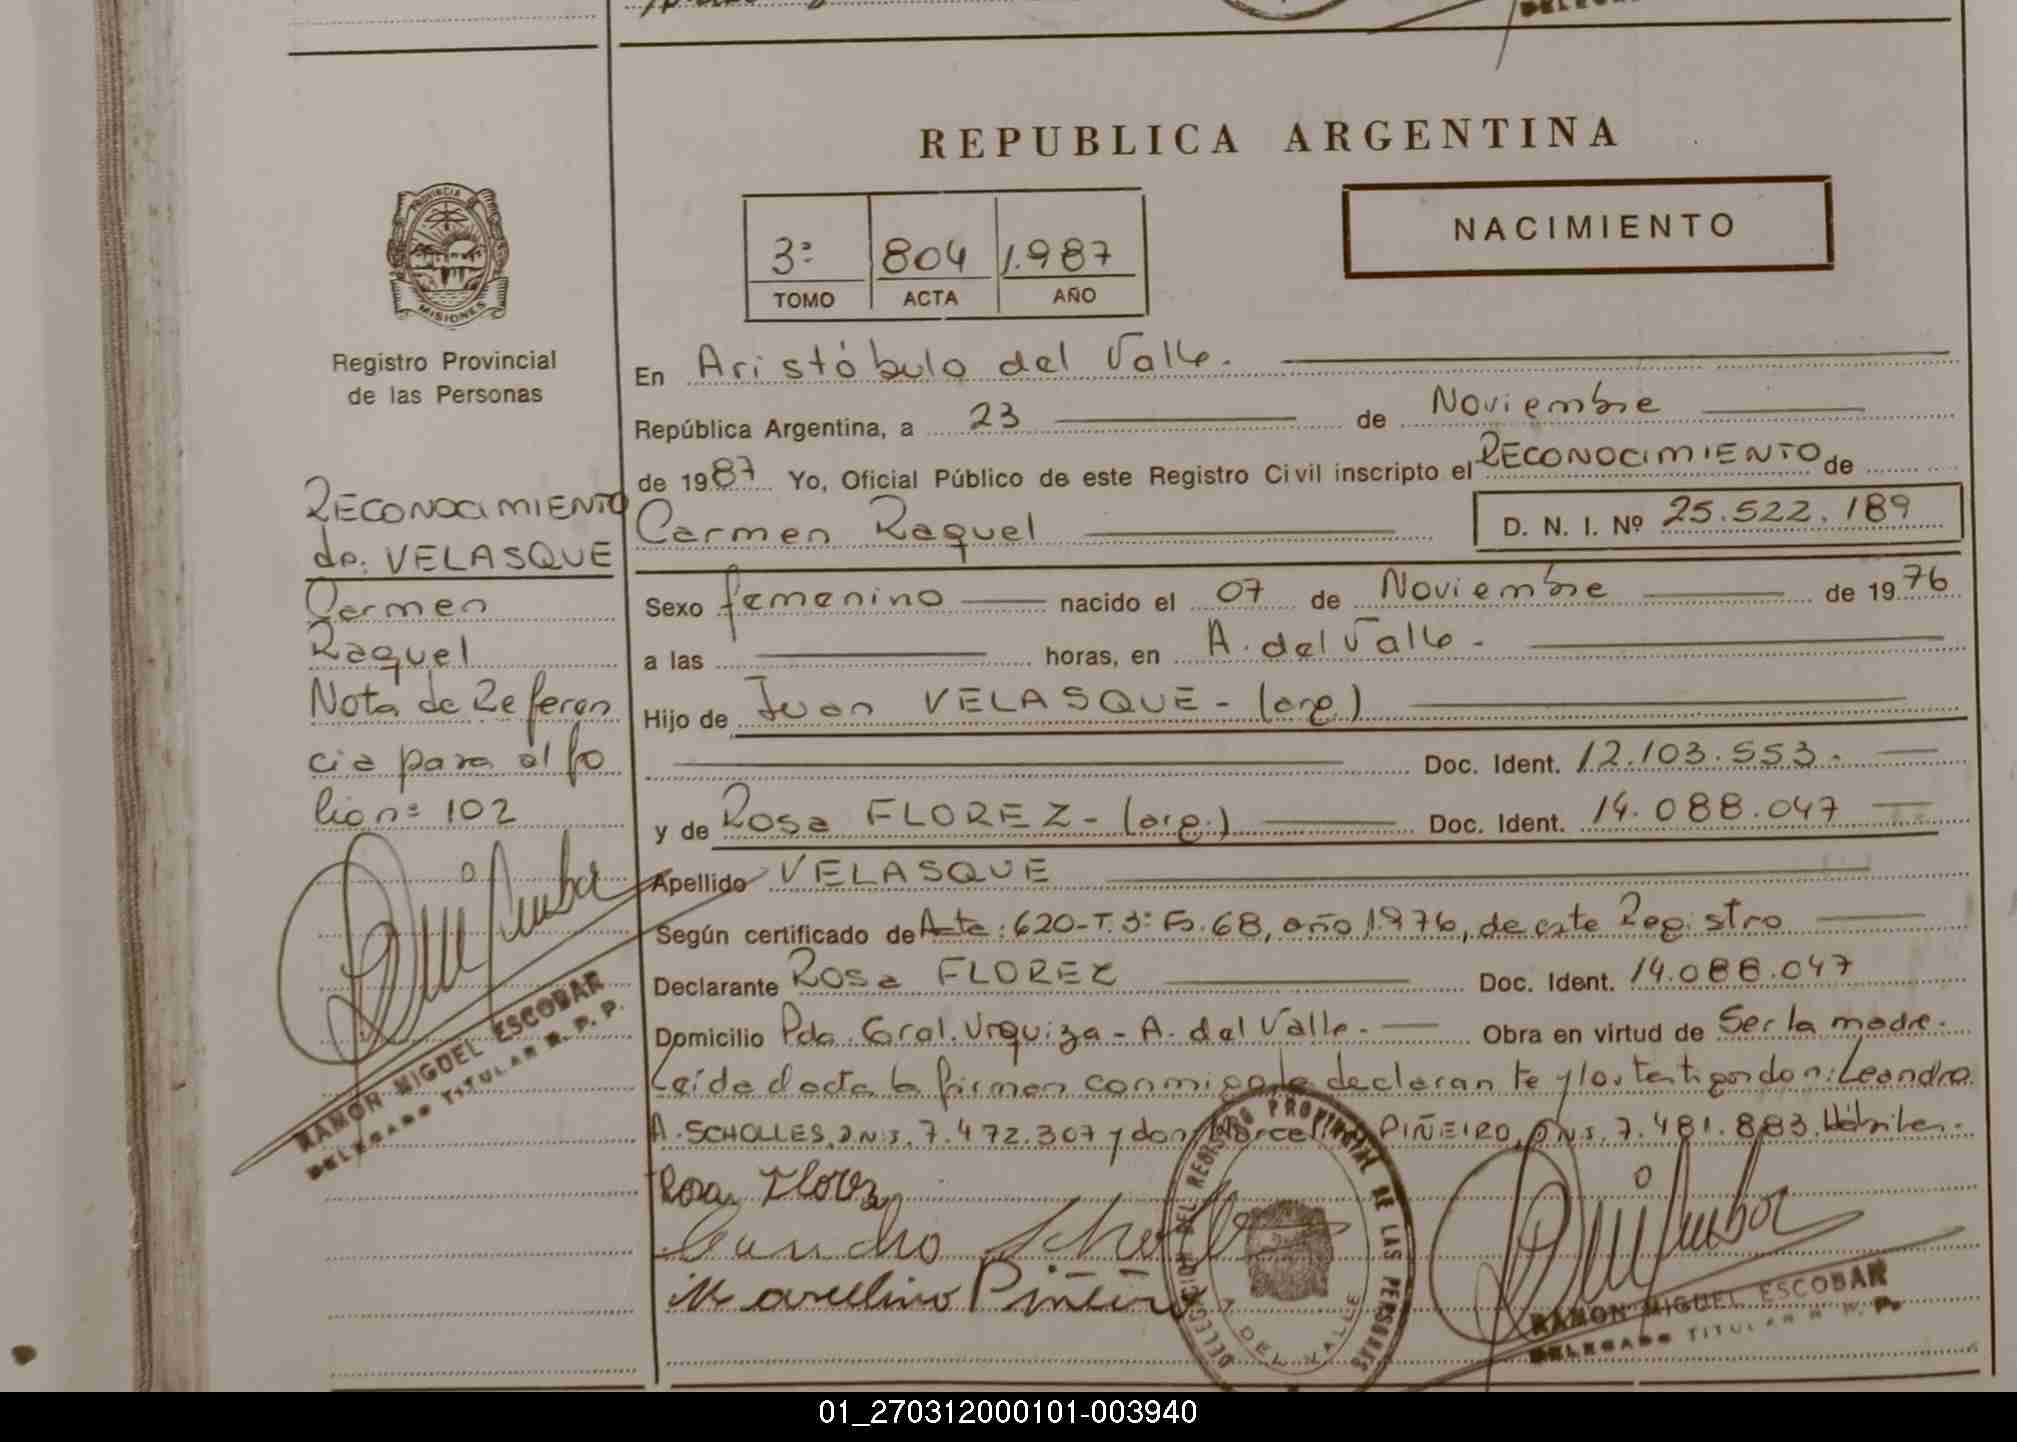 REPUBLICA ARGENTINA
NACIMIENTO
3º 804 1.987
TOMO ACTA AÑO
PROVINCIA
MISIONES
Registro Provincial
de las Personas
RECONOCIMIENTO
de: VELASQUE
Carmen
Raquel
Nota de Referen
cia para el fo
lio nº 102
RAMON MIGUEL ESCOBAR
DELEGADO TITULAR R. P. P.
En Aristóbulo del Valle.
República Argentina, a 23 de Noviembre
de 1987 Yo, Oficial Público de este Registro Civil inscripto el RECONOCIMIENTO de
Carmen Raquel D. N. I. Nº 25.522.189
Sexo femenino nacido el 07 de Noviembre de 1976
a las horas, en A. del Valle.
Hijo de Juan VELASQUE - (arg)
Doc. Ident. 12.103.553.
y de Rosa FLOREZ - (arg.) Doc. Ident. 14.088.047
Apellido VELASQUE
Según certificado de Acta: 620-T.3º Fº.68, año 1.976, de este Registro
Declarante Rosa FLOREZ Doc. Ident. 14.088.047
Domicilio Pdo. Gral. Urquiza - A. del Valle. Obra en virtud de Ser la madre.
Leída el acta la firman conmigo la declarante y los testigos don: Leandro
A. SCHOLLES, D.N.I. 7.472.307 y don Marcelino PIÑEIRO, D.N.I. 7.481.883. Hábiles.
Rosa Florez
Marcelino Piñeiro
DELEGACION DEL REGISTRO PROVINCIAL DE LAS PERSONAS
A. DEL VALLE
RAMON MIGUEL ESCOBAR
DELEGADO TITULAR R. P. P.
01_270312000101-003940